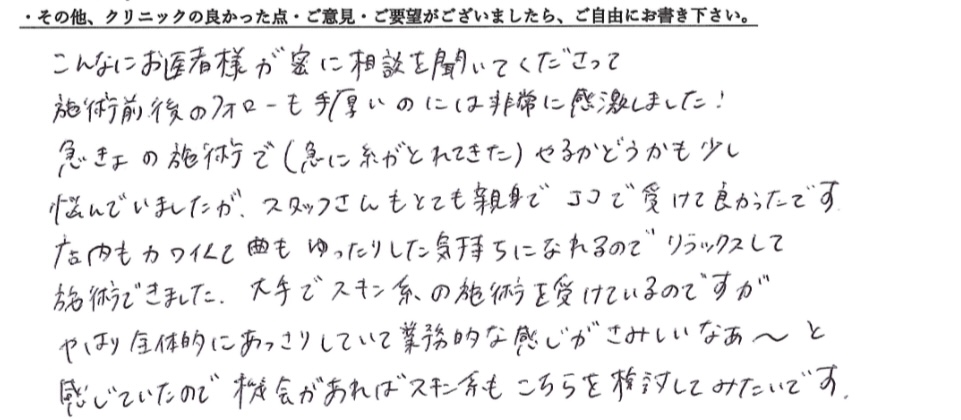 ・その他、クリニックの良かった点・ご意見・ご要望がございましたら、ご自由にお書き下さい。
こんなにお医者様が密に相談を聞いてくださって
施術前後のフォローも手厚いのには非常に感激しました！
急きょの施術で（急に糸がとれてきた）やるかどうかも少し
悩んでいましたが、スタッフさんもとても親身でココで受けて良かったです
店内もカワイくて曲もゆったりした気持ちになれるのでリラックスして
施術できました。大手でスキン系の施術を受けているのですが
やはり全体的にあっさりしていて業務的な感じがさみしいなあ〜と
感じていたので機会があればスキン系もこちらを検討してみたいです。